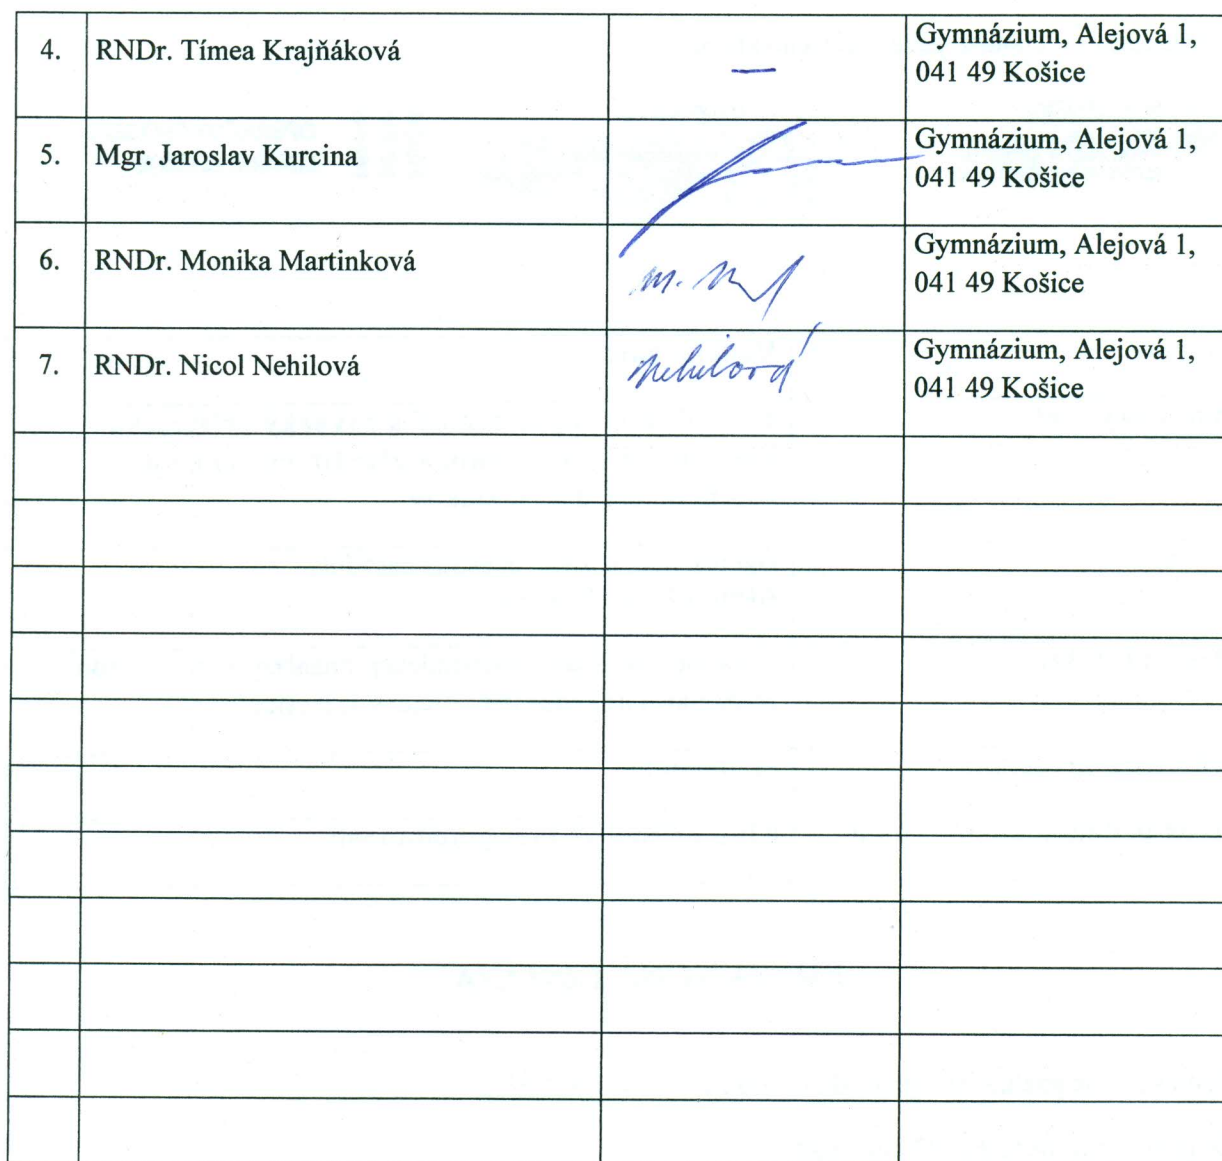 4. RNDr. Tímea Krajňáková — Gymnázium, Alejová 1,
041 49 Košice
5. Mgr. Jaroslav Kurcina Gymnázium, Alejová 1,
041 49 Košice
6. RNDr. Monika Martinková Gymnázium, Alejová 1,
041 49 Košice
7. RNDr. Nicol Nehilová Nehilová Gymnázium, Alejová 1,
041 49 Košice